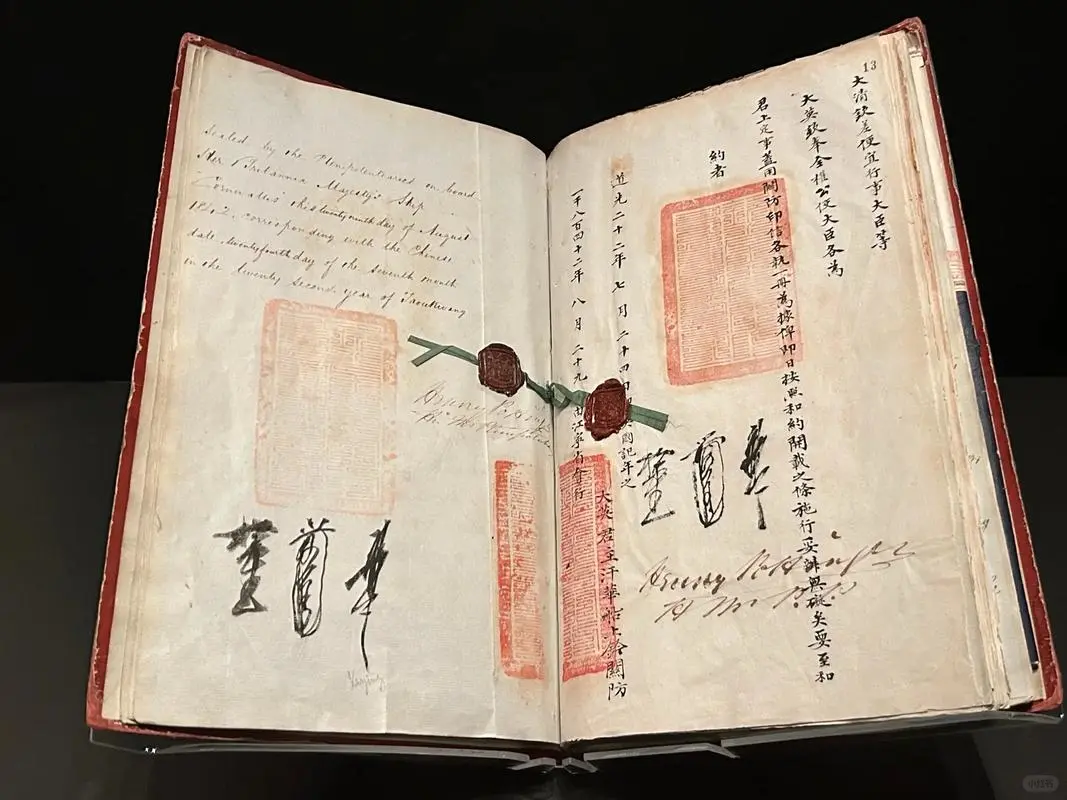 Sealed by the Plenipotentiaries on board
Her Britannic Majesty's Ship
Cornwallis this twenty ninth day of August
1842, corresponding with the Chinese
date, twenty fourth day of the seventh month
in the twenty second year of Taoukwang
Henry Pottinger
Nanjing
13
大清欽差便宜行事大臣等
大英欽奉全權公使大臣各為
君上定事蓋用關防印信各執一冊為據俾即日按照和約開載之條施行妥辦無礙矣要至和
約者
道光二十二年七月二十四日即英國記年之
一千八百四十二年八月二十九日由江寧省會行
大英君主汗華船上鈐關防
Henry Pottinger
小红书